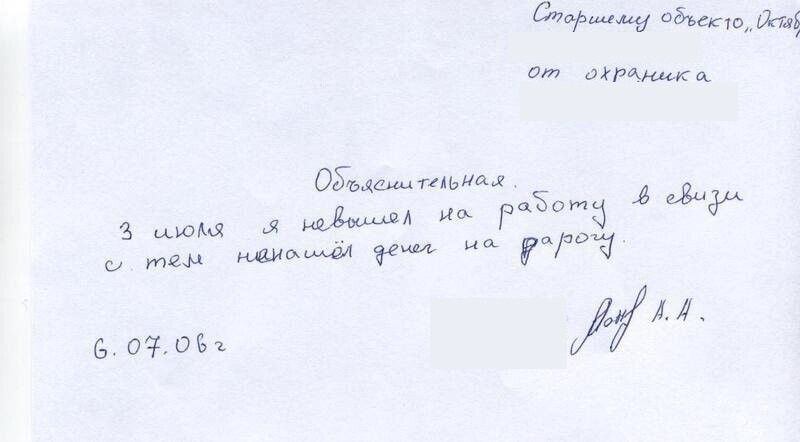 Старшему объекто „Октяб
от охраника
Объяснительная.
3 июля я невышел на работу в свизи
с тем ненашёл денег на дарогу.
6.07.06 г
А.А.